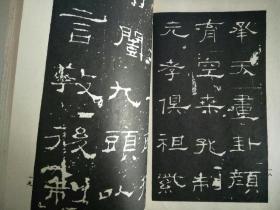 承天畫卦顏
育空桑孔制
元孝俱祖紫
闓九頭以
言教後制